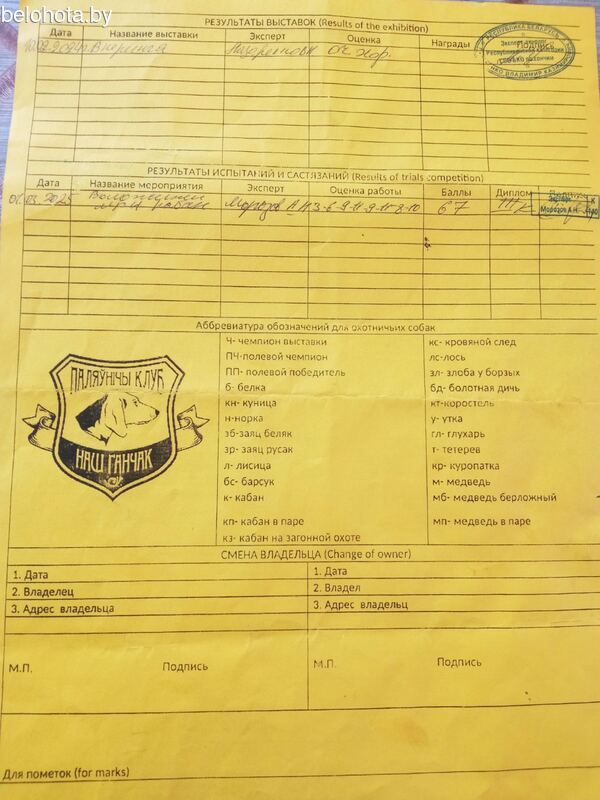 belohota.by
РЕЗУЛЬТАТЫ ВЫСТАВОК (Results of the exhibition)
Дата Название выставки Эксперт Оценка Награды Подпись
Оч. хор.
РЕЗУЛЬТАТЫ ИСПЫТАНИЙ И САСТЯЗАНИЙ (Results of trials competition)
Дата Название мероприятия Эксперт Оценка работы Баллы Диплом
01.03.2025 Морозов А.Н. 67 III К
Эксперт
Морозов А.Н.
Аббревиатура обозначений для охотничьих собак
Ч- чемпион выставки
ПЧ-полевой чемпион
ПП- полевой победитель
б- белка
кн- куница
н-норка
зб-заяц беляк
зр- заяц русак
л- лисица
бс- барсук
к- кабан
кп- кабан в паре
кз- кабан на загонной охоте
кс- кровяной след
лс-лось
зл- злоба у борзых
бд- болотная дичь
кт-коростель
у- утка
гл- глухарь
т- тетерев
кр- куропатка
м- медведь
мб- медведь берложный
мп- медведь в паре
ПАЛЯЎНІЧЫ КЛУБ
НАШ ГАНЧАК
СМЕНА ВЛАДЕЛЬЦА (Change of owner)
1. Дата
2. Владелец
3. Адрес владельца
М.П. Подпись
1. Дата
2. Владел
3. Адрес владельц
М.П. Подпись
Для пометок (for marks)